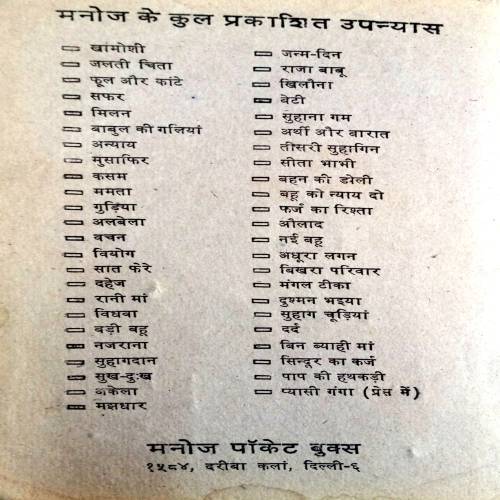 मनोज के कुल प्रकाशित उपन्यास
खामोशी
जलती चिता
फूल और कांटे
सफर
मिलन
बाबुल की गलियां
अन्याय
मुसाफिर
कसम
ममता
गुड़िया
अलबेला
वचन
वियोग
सात फेरे
दहेज
रानी मां
विधवा
बड़ी बहू
नजराना
सुहागदान
सुख-दुःख
अकेला
मझधार
जन्म-दिन
राजा बाबू
खिलौना
बेटी
सुहाना गम
अर्थी और बारात
तीसरी सुहागिन
सीता भाभी
बहन की डोली
बहू को न्याय दो
फर्ज का रिश्ता
औलाद
नई बहू
अधूरा लगन
बिखरा परिवार
मंगल टीका
दुश्मन भइया
सुहाग चूड़ियां
दर्द
बिन ब्याही मां
सिन्दूर का कर्ज
पाप की हथकड़ी
प्यासी गंगा (प्रेस में)
मनोज पॉकेट बुक्स
१५८४, दरीबा कलां, दिल्ली-६